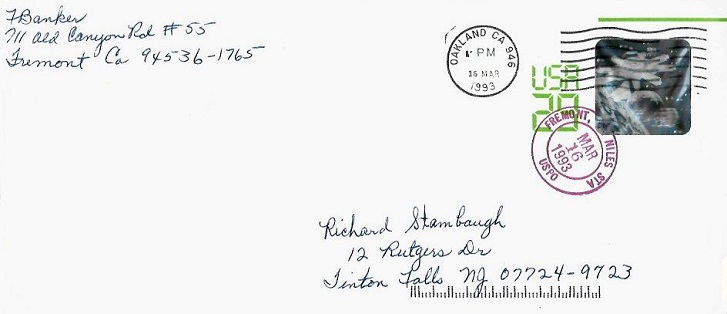 FBanker
711 Old Canyon Rd # 55
Fremont Ca 94536-1765
OAKLAND CA 946
PM
16 MAR
1993
USA
29
FREMONT, NILES STA
MAR
16
1993
USPO
Richard Stambaugh
12 Rutgers Dr
Tinton Falls NJ 07724-9723